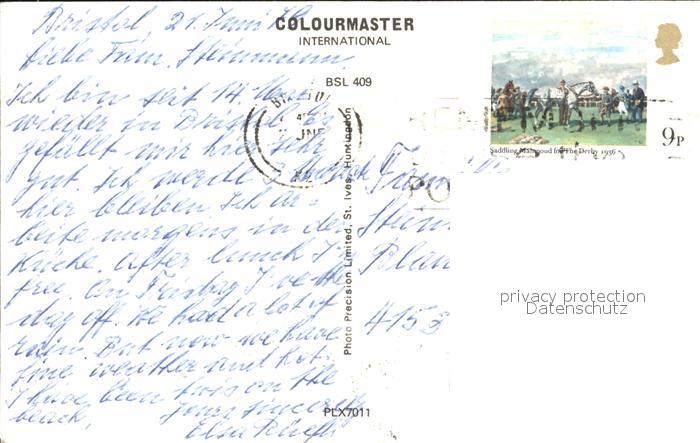 Bristol 21. Juni
COLOURMASTER
INTERNATIONAL
Liebe Fam. Steinmann,
BSL 409
Ich bin seit 14
wieder in Bristol. Es
gefällt mir hier sehr
gut. Ich werde
hier bleiben. Ich ar-
beite morgens in der
Küche. After lunch I'm
free. On Frisday I've the
day off. We had a lot of
rain. But now we have
fine weather and hot.
I have been twis on the
beach.
Yours sincerely
Elsa
Photo Precision Limited, St. Ives, Huntingdon
PLX7011
Saddling Mahmoud for The Derby 1936
9P
Fam
Stein
Blau
4153
privacy protection
Datenschutz